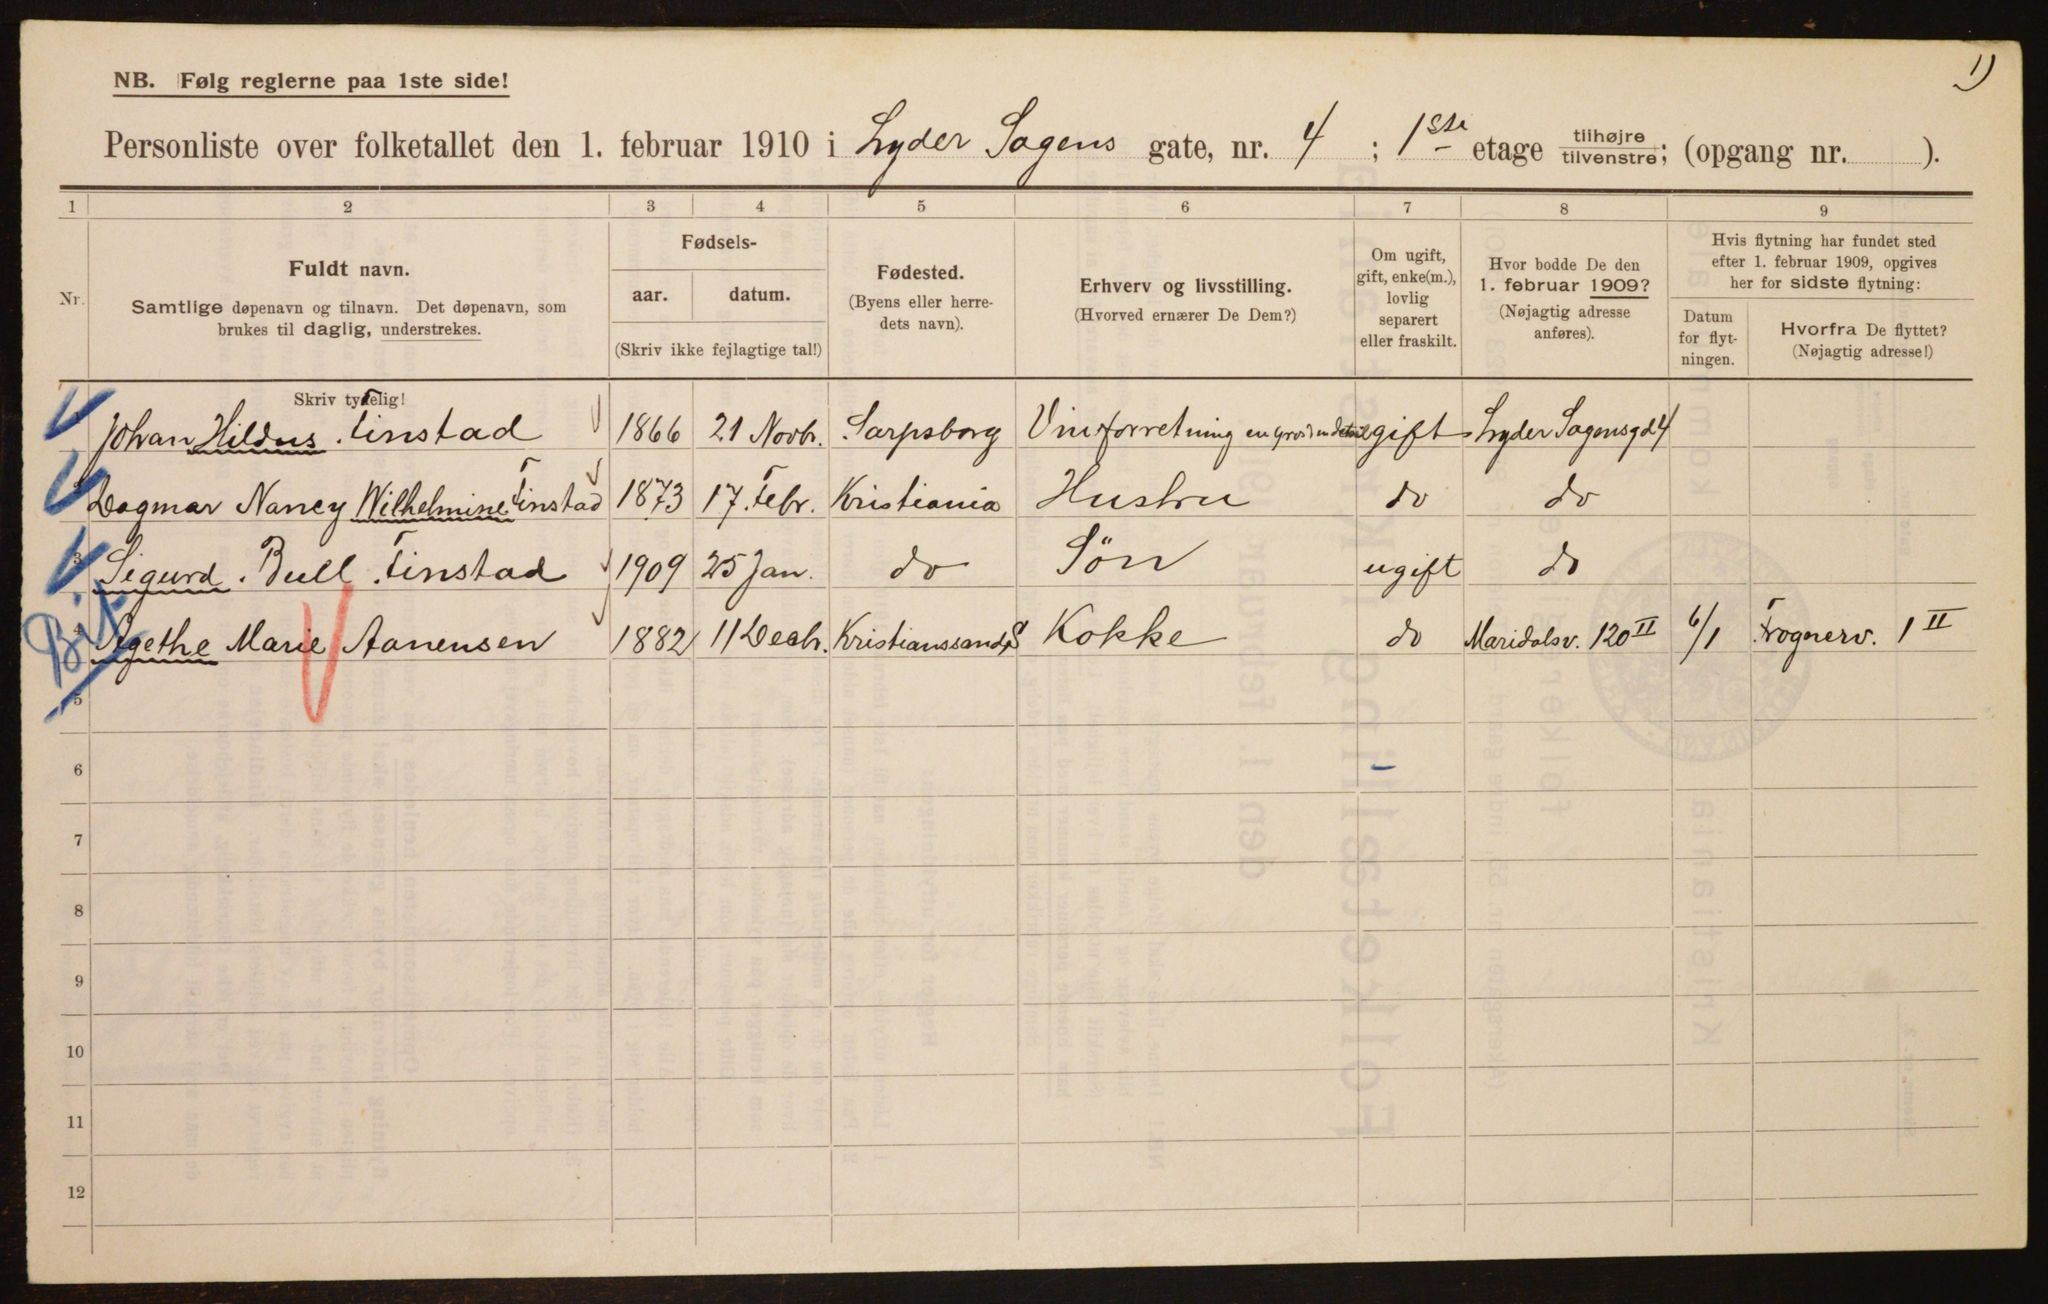 1)
NB. Følg reglerne paa 1ste side!
Personliste over folketallet den 1. februar 1910 i Lyder Sagens gate, nr. 4 ; 1ste etage tilhøjre/tilvenstre; (opgang nr. ).
1 2 3 4 5 6 7 8 9
Nr.
Fuldt navn.
Samtlige døpenavn og tilnavn. Det døpenavn, som
brukes til daglig, understrekes.
Skriv tydelig!
Fødsels-
aar. datum.
(Skriv ikke fejlagtige tal!)
Fødested.
(Byens eller herre-
dets navn).
Erhverv og livsstilling.
(Hvorved ernærer De Dem?)
Om ugift,
gift, enke(m.),
lovlig
separert
eller fraskilt.
Hvor bodde De den
1. februar 1909?
(Nøjagtig adresse
anføres).
Hvis flytning har fundet sted
efter 1. februar 1909, opgives
her for sidste flytning:
Datum
for flyt-
ningen.
Hvorfra De flyttet?
(Nøjagtig adresse!)
Johan Hildus Finstad 1866 21 Novbr. Sarpsborg Vinforretning en gros en detail gift Lyder Sagensgd 4
Dagmar Nancy Wilhelmine Finstad 1873 17. Febr. Kristiania Hustru do do
3 Sigurd Bull Finstad 1909 25 Jan. do Søn ugift do
Bit
4 Agethe Marie Aanensen 1882 11 Decbr. Kristianssand S Kokke do Maridalsv. 120 II 6/1 Frognerv. 1 II
5
6
7
8
9
10
11
12